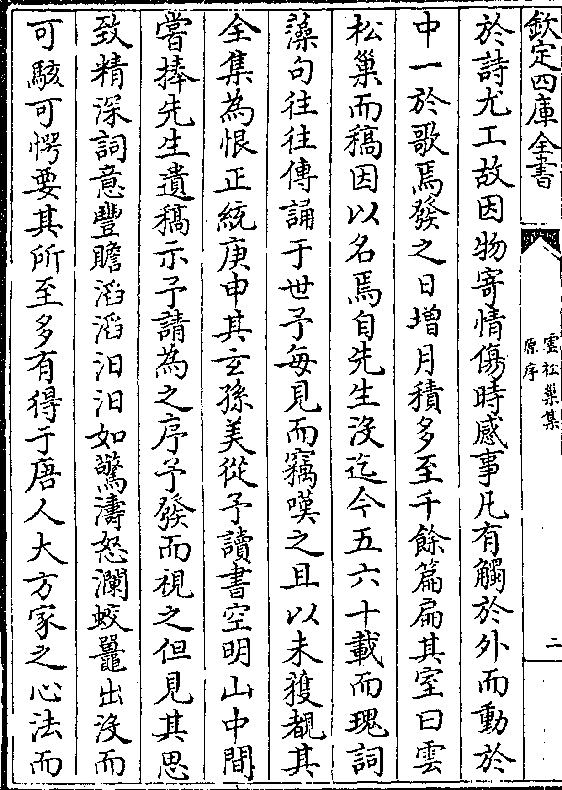 欽定四庫全書
雲松巢集
原序
二
於詩尤工故因物寄情傷時感事凡有觸於外而動於
中一於歌焉發之日增月積多至千餘篇扁其室曰雲
松巢而稿因以名焉自先生沒迄今五六十載而瑰詞
藻句往往傳誦于世予每見而竊嘆之且以未獲覩其
全集為恨正統庚申其玄孫美從予讀書空明山中間
嘗捧先生遺稿示予請為之序予發而視之但見其思
致精深詞意豐贍滔滔汨汨如驚濤怒瀾蛟鼉出沒而
可駭可愕要其所至多有得于唐人大方家之心法而